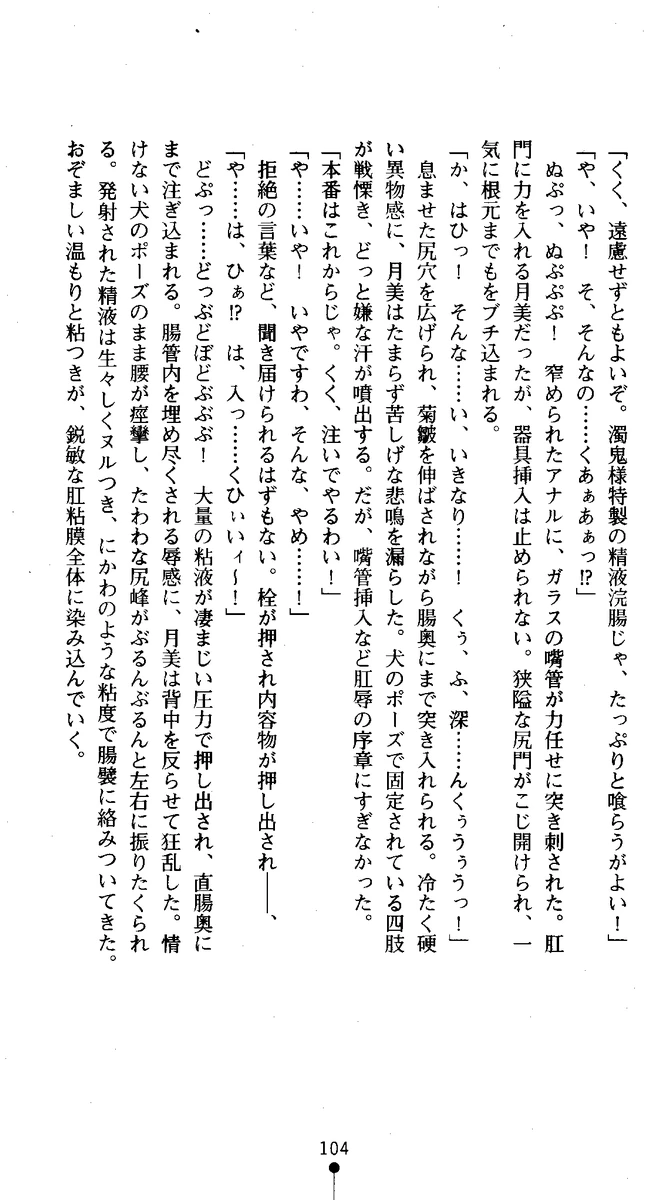 「くく、遠慮せずともよいぞ。濁鬼様特製の精液浣腸じゃ、たっぷりと喰らうがよい！」
「や、いや！　そ、そんなの……くあぁあぁっ!?」
　ぬぷっ、ぬぷぷぷ！　窄められたアナルに、ガラスの嘴管が力任せに突き刺された。肛
門に力を入れる月美だったが、器具挿入は止められない。狭隘な尻門がこじ開けられ、一
気に根元までもをブチ込まれる。
「か、はひっ！　そんな……い、いきなり……！　くぅ、ふ、深……んくぅうぅうっ！」
　息ませた尻穴を広げられ、菊皺を伸ばされながら腸奥にまで突き入れられる。冷たく硬
い異物感に、月美はたまらず苦しげな悲鳴を漏らした。犬のポーズで固定されている四肢
が戦慄き、どっと嫌な汗が噴出する。だが、嘴管挿入など肛辱の序章にすぎなかった。
「本番はこれからじゃ。くく、注いでやるわい！」
「や……いや！　いやですわ、そんな、やめ……！」
　拒絶の言葉など、聞き届けられるはずもない。栓が押され内容物が押し出され――、
「や……は、ひぁ!?　は、入っ……くひぃいィ～！」
　どぷっ……どっぷどぼどぶぶぶ！　大量の粘液が凄まじい圧力で押し出され、直腸奥に
まで注ぎ込まれる。腸管内を埋め尽くされる辱感に、月美は背中を反らせて狂乱した。情
けない犬のポーズのまま腰が痙攣し、たわわな尻峰がぶるんぶるんと左右に振りたくられ
る。発射された精液は生々しくヌルつき、にかわのような粘度で腸襞に絡みついてきた。
おぞましい温もりと粘つきが、鋭敏な肛粘膜全体に染み込んでいく。
104